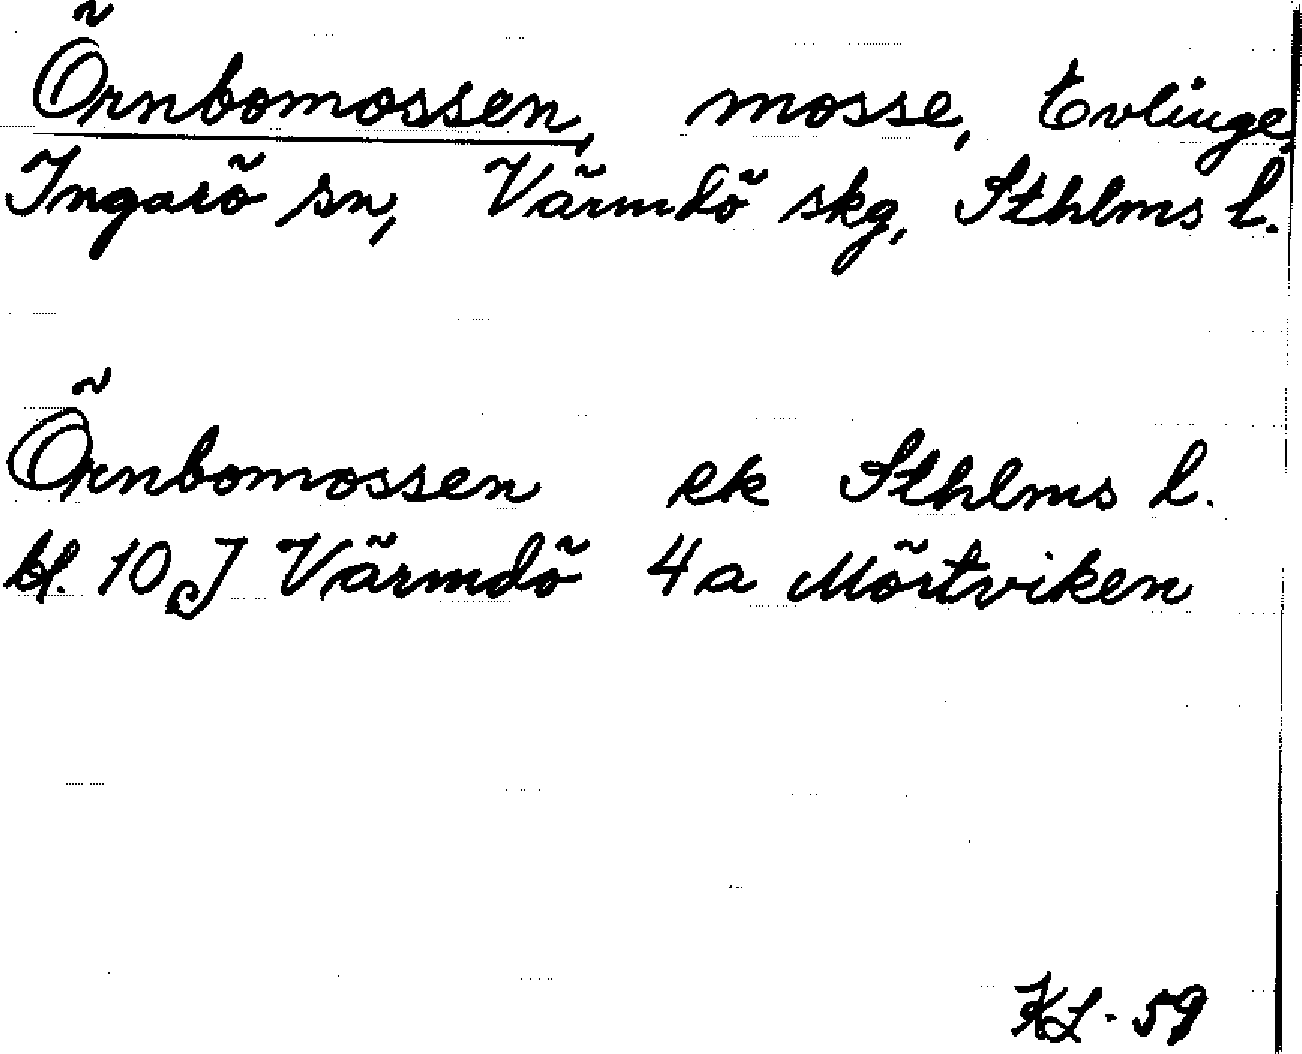 Örnbomossen, mosse, Evlinge,
Ingarö sn, Värmdö skg, Sthlms l.
Örnbomossen ek Sthlms l.
bl. 10 J Värmdö 4a Mörtviken
KL - 59